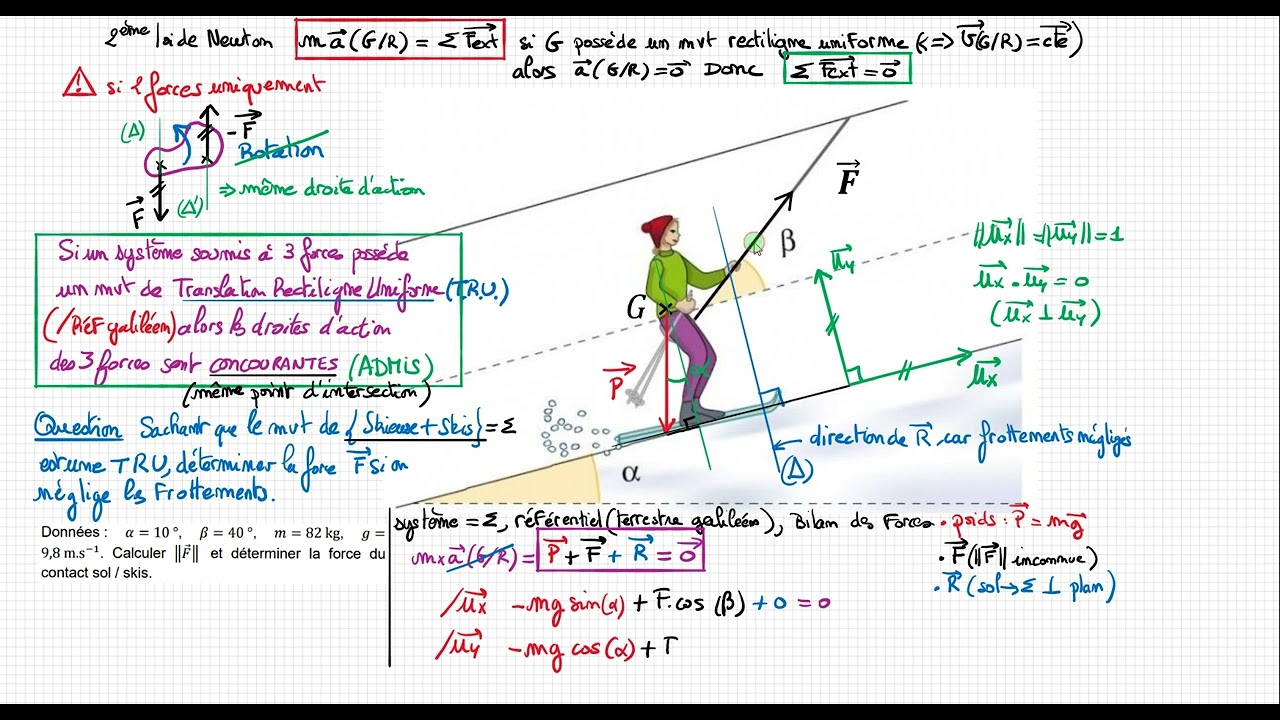 2ème loi de Newton m a⃗ (G/R) = Σ F⃗ext si G possède un mvt rectiligne uniforme (<=> v⃗(G/R) = cte⃗)
alors a⃗(G/R) = 0⃗ Donc Σ F⃗ext = 0⃗
⚠ si 2 forces uniquement
(Δ)
-F⃗
Rotation
=> même droite d'action
F⃗
(Δ')
Si un système soumis à 3 forces possède
un mvt de Translation Rectiligne Uniforme (T.R.U.)
(/Réf galiléen) alors les droites d'action
des 3 forces sont CONCOURANTES (ADMIS)
(même point d'intersection)
Question Sachant que le mvt de {Skieuse + Skis} = Σ
est une TRU, déterminer la force F⃗ si on
néglige les Frottements.
Données : α = 10 °, β = 40 °, m = 82 kg, g =
9,8 m.s⁻¹. Calculer ‖F⃗‖ et déterminer la force du
contact sol / skis.
F⃗
β
G
P⃗
α
α
u⃗y
u⃗x
‖u⃗x‖ = ‖u⃗y‖ = 1
u⃗x • u⃗y = 0
(u⃗x ⊥ u⃗y)
direction de R⃗ car frottements négligés
(Δ)
système = Σ, référentiel (terrestre galiléen), Bilan des Forces • poids : P⃗ = mg⃗
• F⃗ (‖F⃗‖ inconnue)
• R⃗ (sol → Σ ⊥ plan)
m x a⃗(G/R) = P⃗ + F⃗ + R⃗ = 0⃗
/u⃗x -mg sin(α) + F. cos (β) + 0 = 0
/u⃗y -mg cos(α) + T